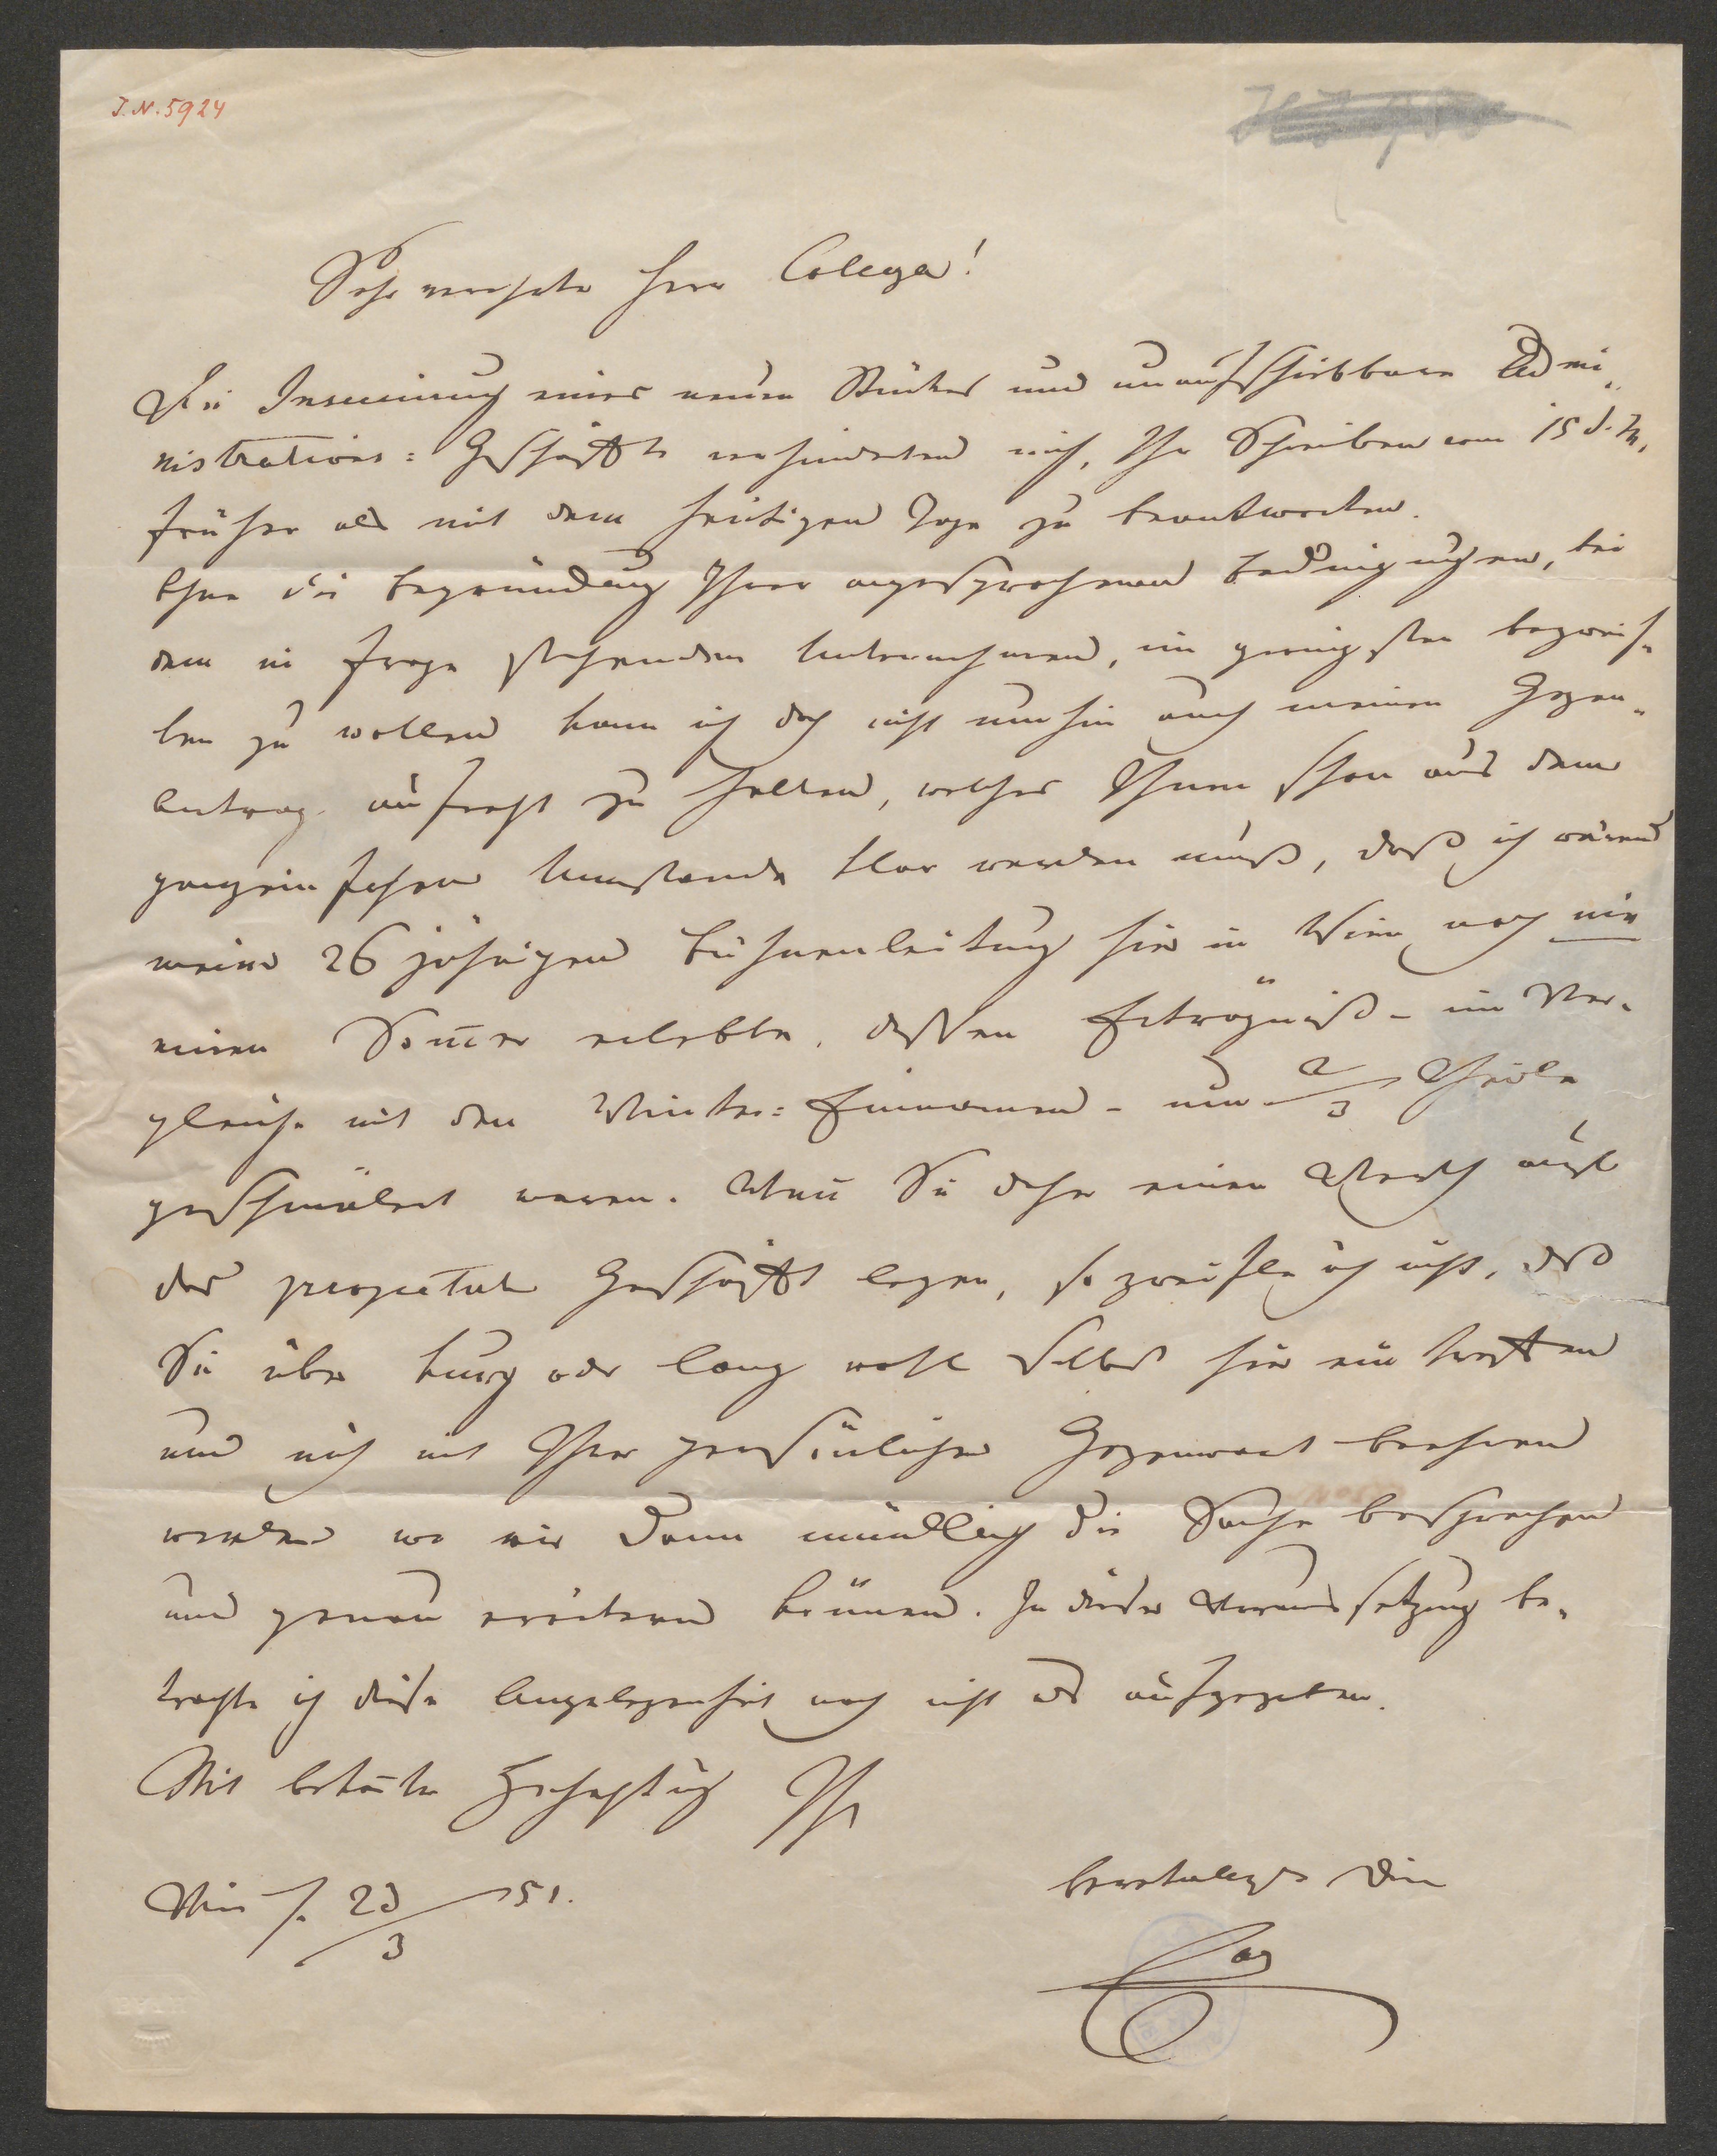 I.N. 5924
Sehr verehrter Herr Collega!
Die Insceniruug eines neuen Stückes und unaufschiebbare Admi-
nistrations= Geschäfte verhinderten mich, Ihr Schreiben vom 15 d. M.
früher als mit dem heutigen Tage zu beantworten.
Ohne die Begründung Ihrer angesprochenen Bedingungen, bei
dem in Frage stehenden Unternehmen, im geringsten bezweif-
len zu wollen kann ich doch nicht umhin auch meinen Gegen-
Antrag aufrecht zu halten, welches Ihnen schon aus dem
ganz einfachen Umstande klar werden muß, daß ich wärend
meiner 26 jährigen Bühnenleitung hier in Wien noch nie
einen Som̅er erlebte, dessen Erträgniß - im Ver-
gleiche mit den Winter= Einnamen - um 2/3 Theile
geschmälert waren. Wen̅ Sie daher einen Werth auf
das projectirte Geschäft legen, so zweifle ich nicht, daß
Sie über kurz oder lang wohl selbst hier eintreffen
und mich mit Ihrer persönlichen Gegenwart beehren
werden wo wir dann mündlich die Sache besprechen
und genau erörtern können. In dieser Voraussetzung be-
trachte ich diese Angelegenheit noch nicht als aufgegeben.
Mit bekan̅ter Hochachtung Ihr
Wien /. 23/3 51.
bereitwilligster Diener